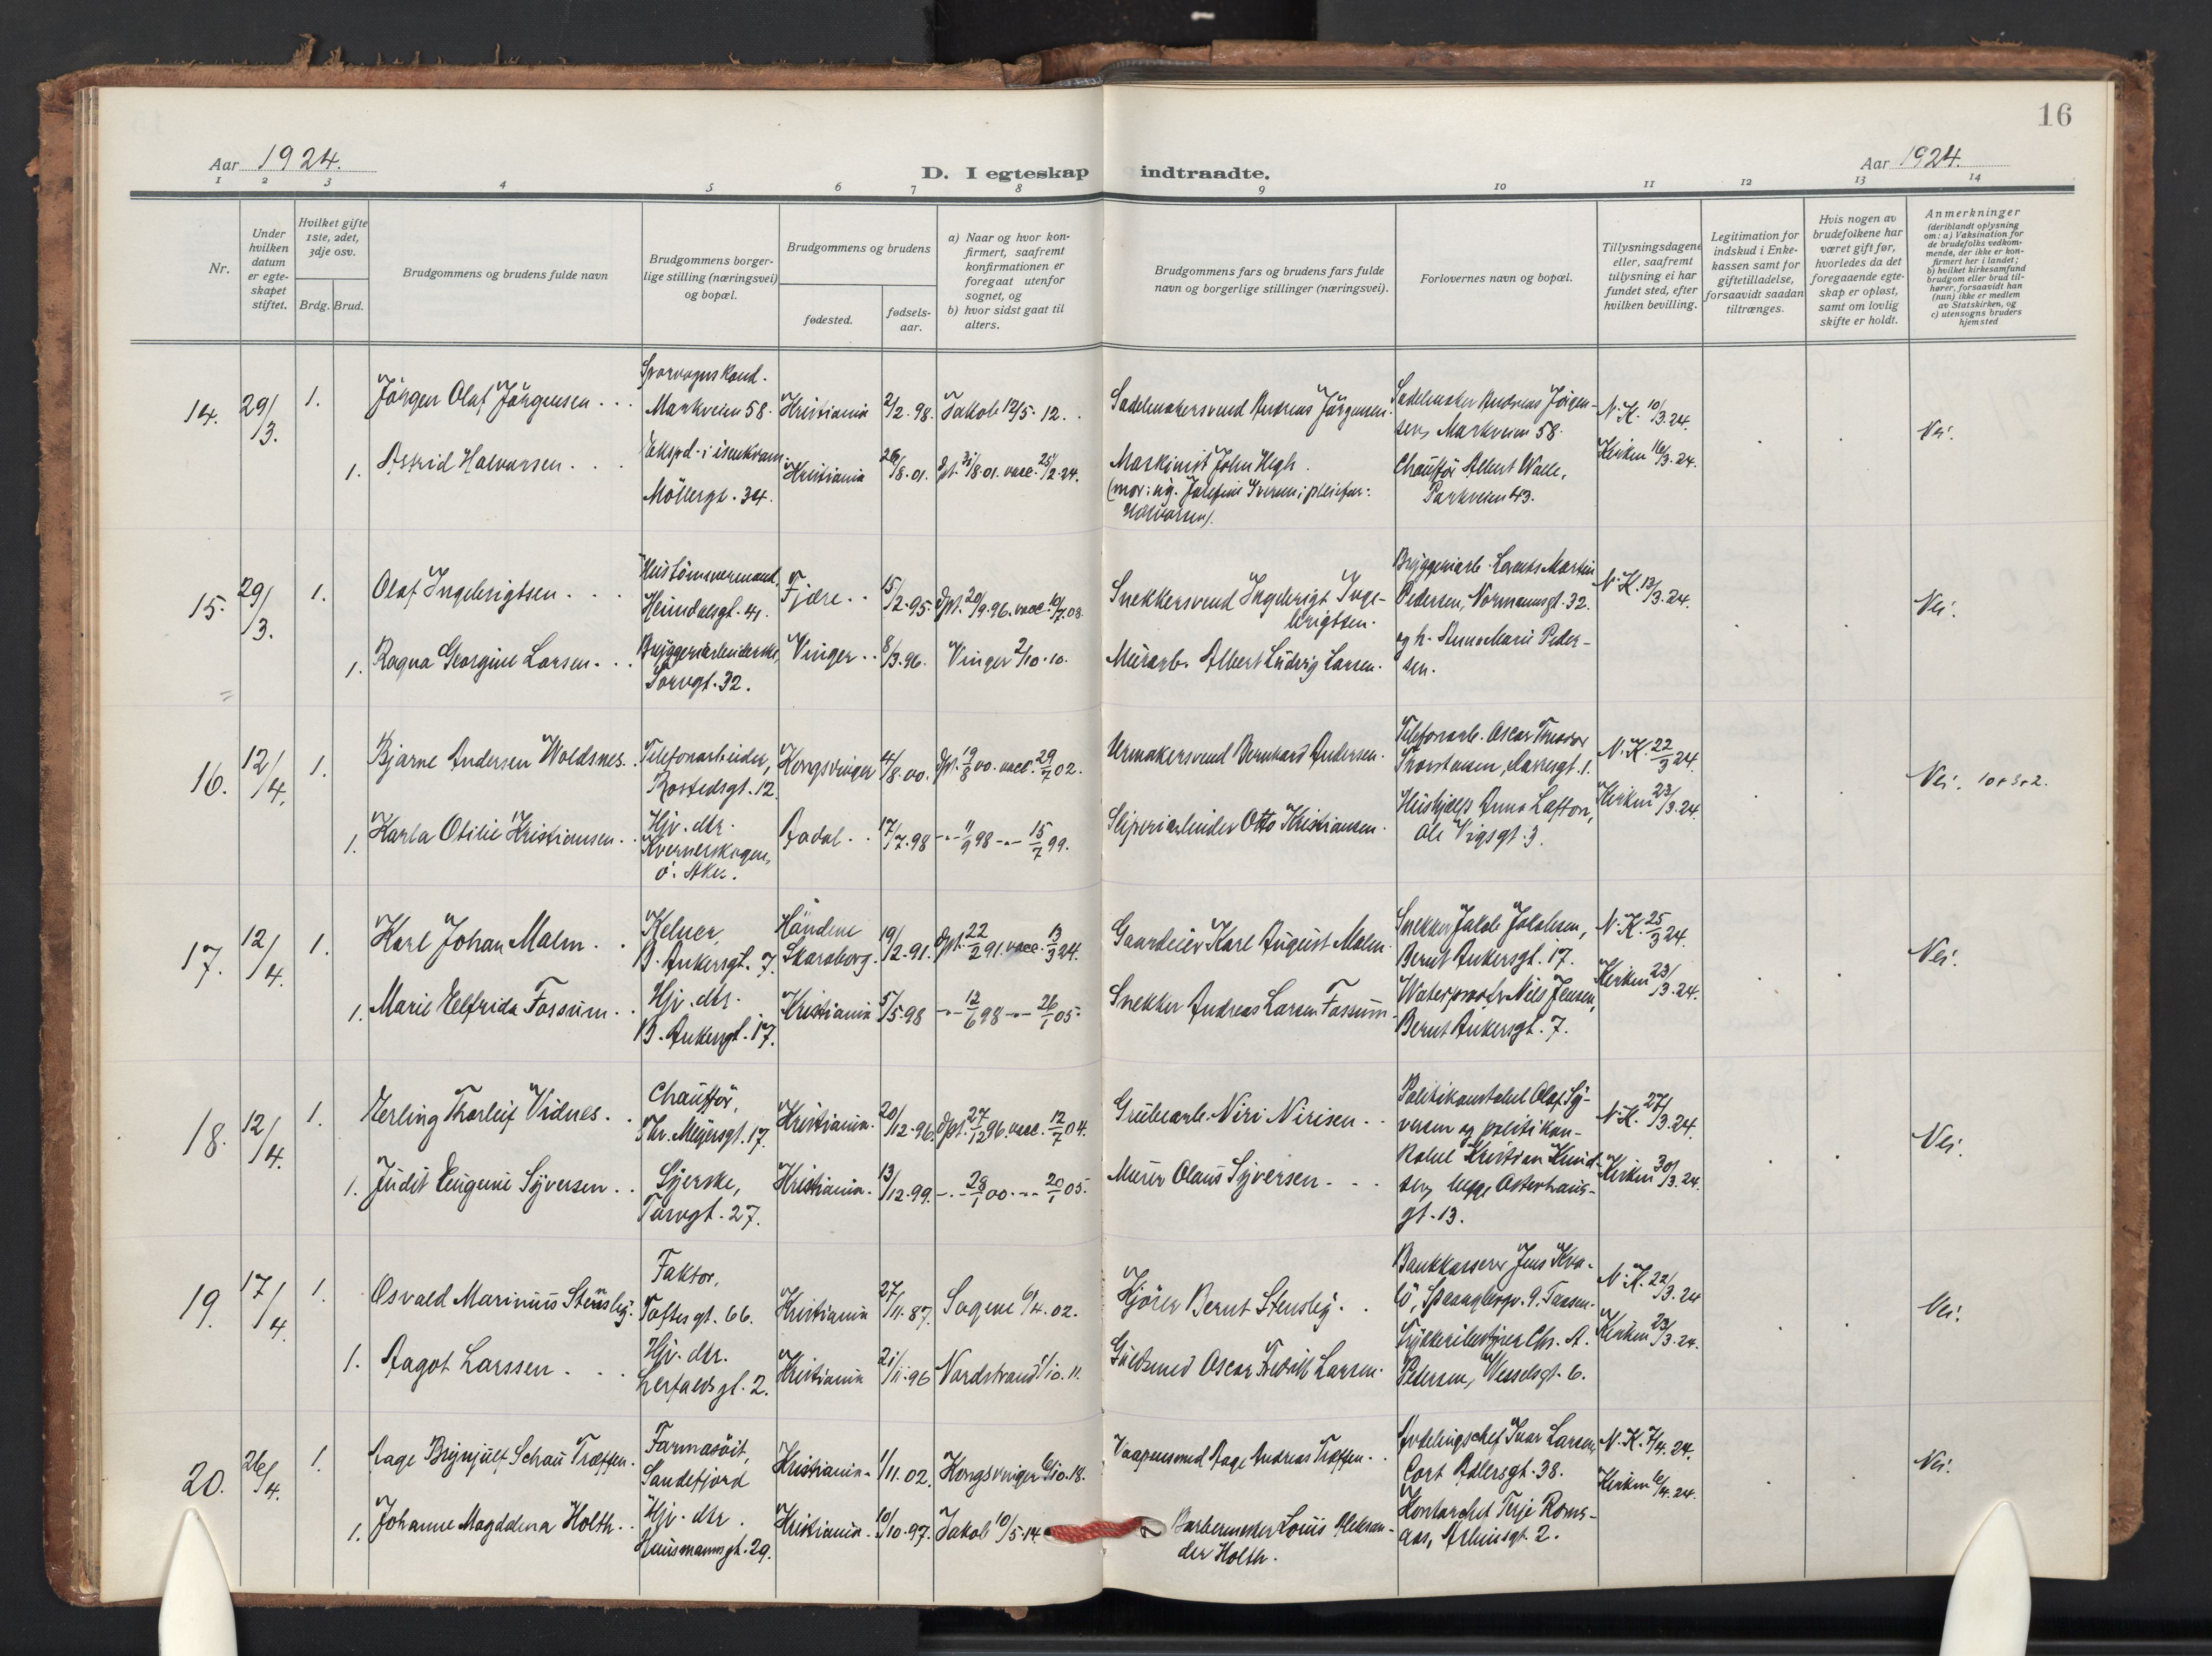 16
Aar 1924.
D. I egteskap indtraadte.
Aar 1924.
1 2 3 4 5 6 7 8 9 10 11 12 13 14
Nr.
Under
hvilken
datum
er egte-
skapet
stiftet.
Hvilket gifte
1ste, 2det,
3dje osv.
Brdg. Brud.
Brudgommens og brudens fulde navn
Brudgommens borger-
lige stilling (næringsvei)
og bopæl.
Brudgommens og brudens
fødested.
fødsels-
aar.
a) Naar og hvor kon-
firmert, saafremt
konfirmationen er
foregaat utenfor
sognet, og
b) hvor sidst gaat til
alters.
Brudgommens fars og brudens fars fulde
navn og borgerlige stillinger (næringsvei).
Forlovernes navn og bopæl.
Tillysningsdagene
eller, saafremt
tillysning ei har
fundet sted, efter
hvilken bevilling.
Legitimation for
indskud i Enke-
kassen samt for
giftetilladelse,
forsaavidt saadan
tiltrænges.
Hvis nogen av
brudefolkene har
været gift før,
hvorledes da det
foregaaende egte-
skap er opløst,
samt om lovlig
skifte er holdt.
Anmerkninger
(deriblandt oplysning
om: a) Vaksination for
de brudefolks vedkom-
mende, der ikke er kon-
firmert her i landet;
b) hvilket kirkesamfund
brudgom eller brud til-
hører, forsaavidt han
(hun) ikke er medlem
av Statskirken, og
c) utensogns bruders
hjemsted
14. 29/3. 1.
Jörgen Olaf Jörgensen
Sporvognskond.
Markveien 58.
Kristiania
2/2.98.
Jakob 12/5.12.
Sadelmakersvend Andreas Jörgensen.
Sadelmaker Andreas Jörgen-
sen, Markveien 58.
N.K. 10/3.24.
Kirken 16/3.24.
Nei.
1. Astrid Halvorsen
Ekspd. i isenkram.
Möllergt. 34.
Kristiania
26/8.01.
dpt. 31/8.01. vacc. 25/2.24.
Maskinist John Høgh.
(mor: ug. Josefine Iversen; pleiefar:
Halvorsen).
Chauffør Albert Walle,
Parkveien 43.
15. 29/3. 1.
Olaf Ingebrigtsen
Hustömmermand,
Heimdalsgt. 41.
Fjære
15/2.95
dpt. 20/9.96. vacc. 10/7.03.
Snekkersvend Ingebrigt Inge-
brigtsen.
Bryggeriarb. Lorents Martin
Pedersen, Normannsgt. 32.
og h. Anna Marie Peder-
sen.
N.K. 13/3.24.
Nei.
1. Ragna Georgine Larsen
Bryggeriarbeiderske,
Torvgt. 32.
Vinger
8/3.96.
Vinger 2/10.10.
Murarb. Albert Ludvig Larsen.
16. 12/4. 1.
Bjarne Andersen Woldsnes.
Telefonarbeider,
Rostedsgt. 12.
Kongsvinger
4/8.00.
dpt. 19/8 00. vacc. 29/7 02.
Urmakersvend Bernhard Andersen.
Telefonarb. Oscar Theodor
Thorstensen, 1.
Hushjelp Anna Løften,
Ole Vigsgt. 3.
N.K. 22/3 24.
Kirken 23/3.24.
Nei. 10+3+2.
1. Karla Otilie Kristiansen
Hjv. dtr.
Kvernerskogen,
ö. Aker.
Aadal
17/7.98
-"- 11/9 98 -"- 15/7 99.
Sliperiarbeider Otto Kristiansen.
17. 12/4. 1.
Karl Johan Malm
Kelner,
B. Ankersgt. 7.
Händene
Skaraborg.
19/2.91.
dpt. 22/2 91. vacc. 13/3 24.
Gaardeier Karl August Malm.
Snekker Jakob Jakobsen,
Bernt Ankersgt. 17.
N.K. 25/3 24.
Kirken 23/3.24.
Nei.
1. Marie Elfrida Fossum
Hjv. dtr.
B. Ankersgt. 17.
Kristiania
5/5.98
-"- 12/6 98 -"- 26/1 05.
Snekker Andreas Larsen Fossum.
Nils Jensen,
Bernt Ankersgt. 7.
18. 12/4. 1.
Erling Thorleif Vidnes
Chauffør,
Thv. Meyersgt. 17.
Kristiania.
20/12.96.
dpt. 27/12 96. vacc. 12/7 04.
Grubearb. Niri Nirisen
Politikonstabel Olaf Sy-
versen og politikon-
stabel Kristian Knud-
sen, begge Osterhaus-
gt. 13.
N.K. 27/3.24.
Kirken 30/3.24.
Nei.
1. Judit Eugenie Syversen
Syerske,
Torvgt. 27.
Kristiania.
13/12.99.
-"- 28/1 00. -"- 20/1 05.
Murer Olaus Syversen
19. 17/4. 1.
Osvald Marinius Stensby.
Faktor,
Toftesgt. 66.
Kristiania
27/11.87.
Sagene 6/4.02.
Kjører Bernt Stensby.
Bankkasserer Jens Kva-
lö, 9. Taasen.
Trykkeribestyrer Chr. A.
Petersen, Wesselsgt. 6.
N.K. 22/3.24
Kirken 23/3.24.
Nei.
1. Aagot Larssen
Hjv. dtr.
2.
Kristiania
21/11.96
Nordstrand 1/10.11.
Guldsmed Oscar Fredrik Larsen.
20. 26/4. 1.
Aage Brynjulf Schou Træffen.
Farmasöit,
Sandefjord
Kristiania.
1/11.02.
Kongsvinger 6/10.18.
Vaapensmed Aage Andreas Træffen.
Avdelingschef Ivar Larsen,
Cort Adlersgt. 38.
N.K. 7/4.24.
Kirken 6/4.24.
Nei.
1. Johanne Magdalena Holth
Hjv. dtr.
Hausmannsgt. 29.
Kristiania.
10/10.97.
Jakob 10/5.14.
Barbermester Louis Aleksan-
der Holth.
Kontorchef Terje Roms-
aas, 2.